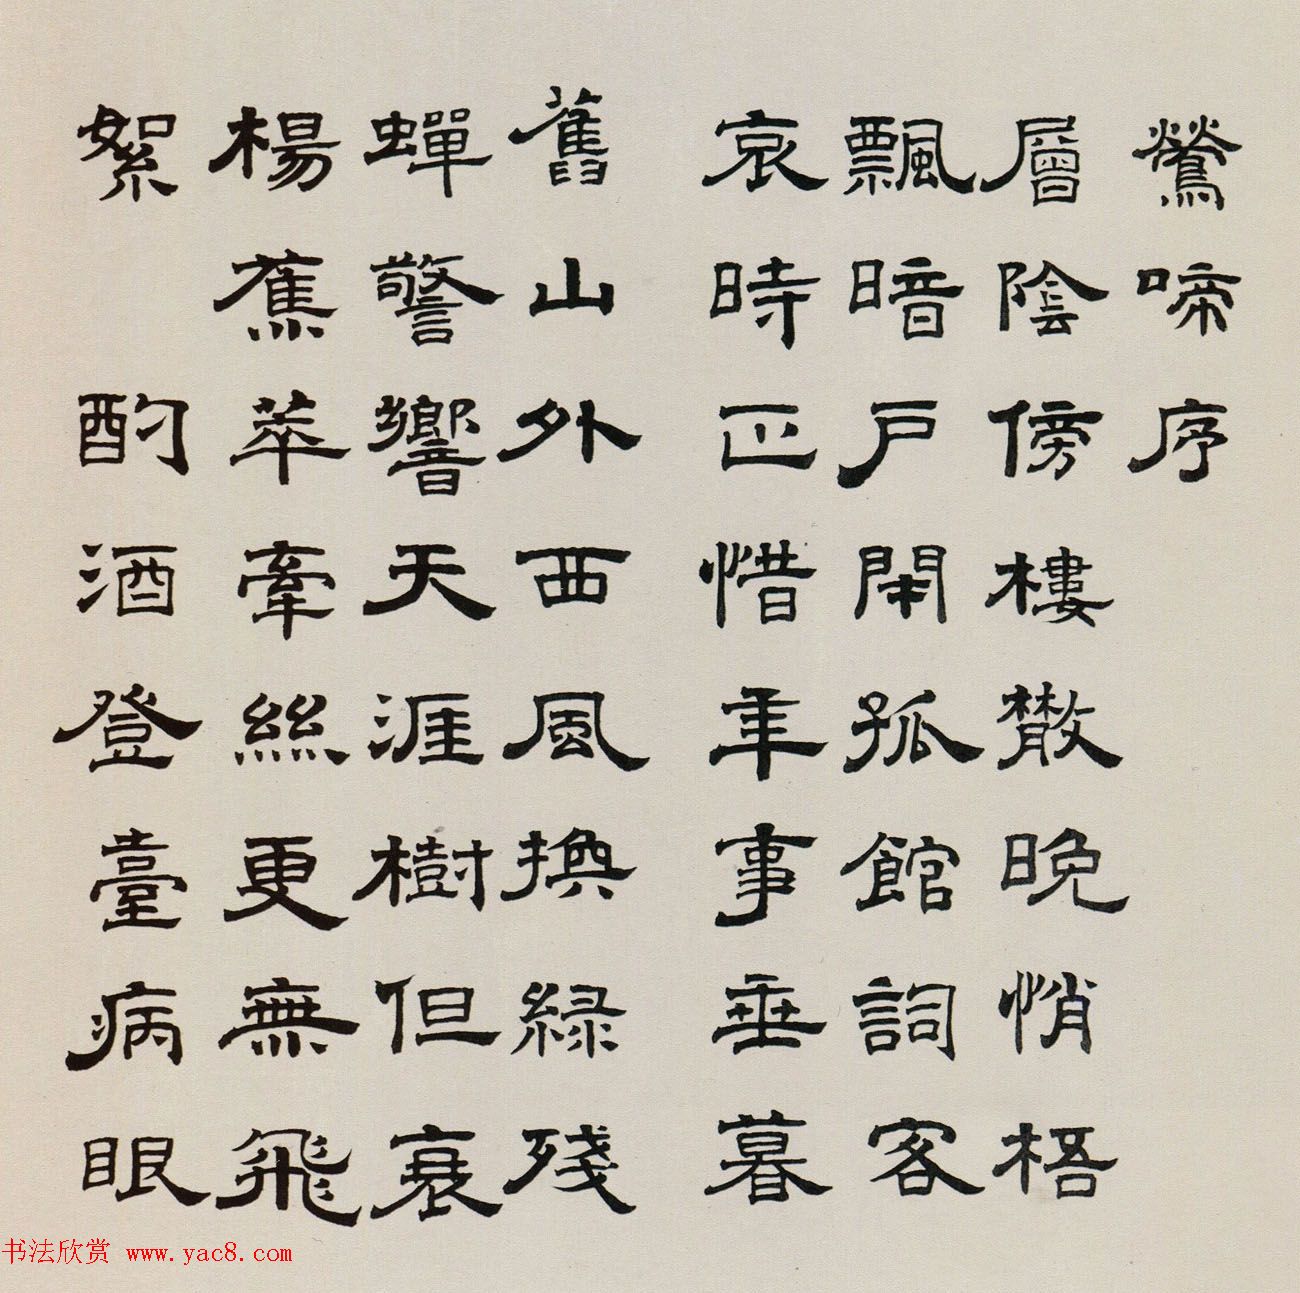 鶯啼序
層陰傍樓散晚悄梧
飄暗戶閉孤館詞客
哀時正惜年事垂暮
舊山外西風換綠殘
蟬警響天涯樹但衰
楊蕉萃牽絲更無飛
絮 酌酒登臺病眼
书法欣赏 www.yac8.com